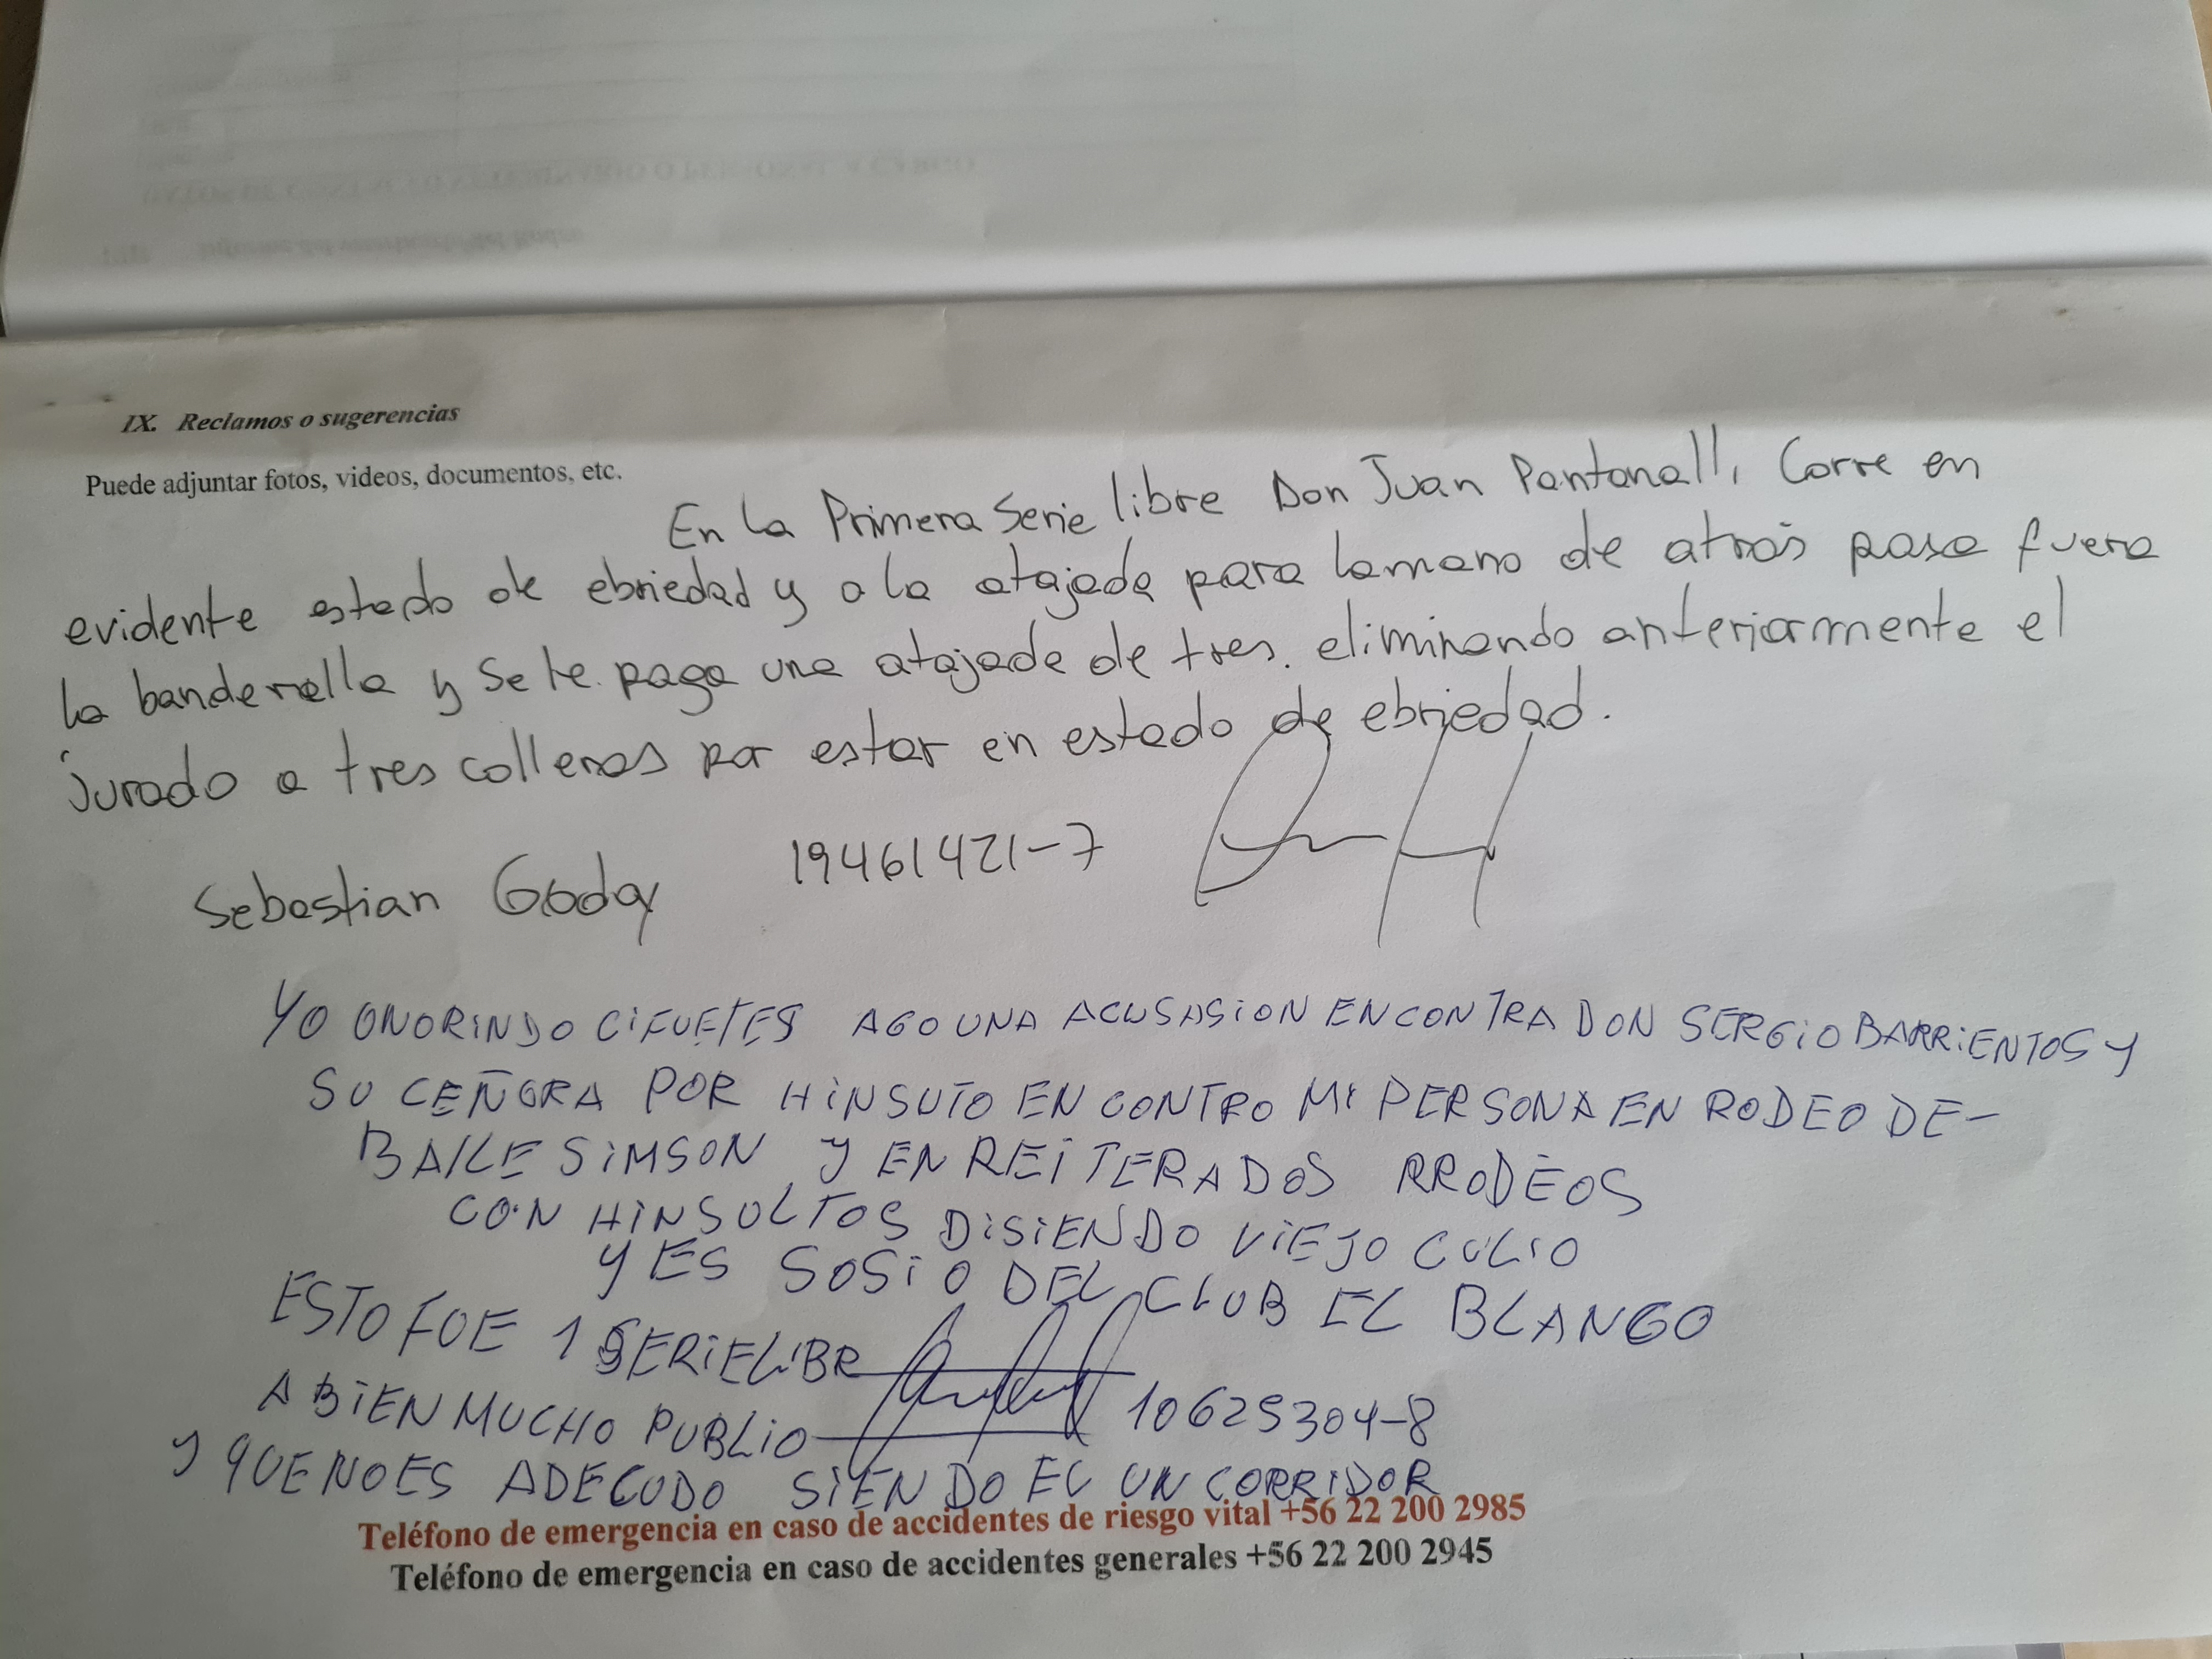 IX. Reclamos o sugerencias
Puede adjuntar fotos, videos, documentos, etc.
En la Primera Serie libre Don Juan Pantanalli, Corre en
evidente estado de ebriedad y a la atajada para la mano de atrás pasa fuera
la banderilla y se le paga una atajada de tres. eliminando anteriormente el
jurado a tres colleras por estar en estado de ebriedad.
Sebastian Godoy 19461421-7
YO ONORINDO CIFUETES AGO UNA ACUSASION EN CONTRA DON SERGIO BARRIENTOS Y
SU CEÑORA POR HINSUTO EN CONTRO MI PERSONA EN RODEO DE-
BAILE SIMSON Y EN REITERADOS RRODEOS
CON HINSULTOS DISIENDO VIEJO CULIO
Y ES SOSIO DEL CLUB EL BLANGO
ESTO FUE 1 SERIE LIBR
ABIEN MUCHO PUBLIO 10625304-8
Y QUE NO ES ADECUDO SIENDO EL UN CORRIDOR
Teléfono de emergencia en caso de accidentes de riesgo vital +56 22 200 2985
Teléfono de emergencia en caso de accidentes generales +56 22 200 2945